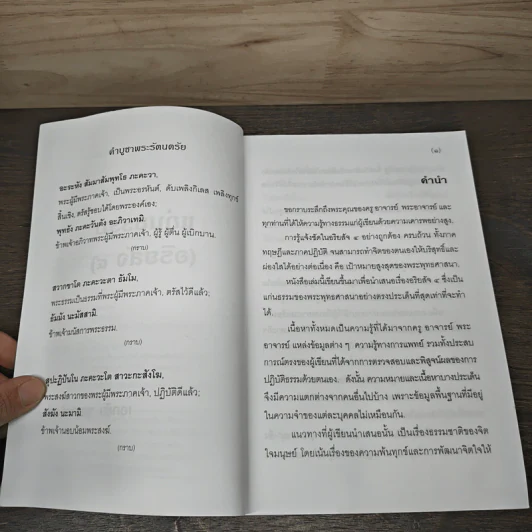 คำบูชาพระรัตนตรัย
อะระหัง สัมมาสัมพุทโธ ภะคะวา,
พระผู้มีพระภาคเจ้า, เป็นพระอรหันต์, ดับเพลิงกิเลส เพลิงทุกข์
สิ้นเชิง, ตรัสรู้ชอบได้โดยพระองค์เอง;
พุทธัง ภะคะวันตัง อะภิวาเทมิ.
ข้าพเจ้าอภิวาทพระผู้มีพระภาคเจ้า, ผู้รู้ ผู้ตื่น ผู้เบิกบาน.
(กราบ)
สวากขาโต ภะคะวะตา ธัมโม,
พระธรรมเป็นธรรมที่พระผู้มีพระภาคเจ้า, ตรัสไว้ดีแล้ว;
ธัมมัง นะมัสสามิ.
ข้าพเจ้านมัสการพระธรรม.
(กราบ)
สุปะฏิปันโน ภะคะวะโต สาวะกะสังโฆ,
พระสงฆ์สาวกของพระผู้มีพระภาคเจ้า, ปฏิบัติดีแล้ว;
สังฆัง นะมามิ.
ข้าพเจ้านอบน้อมพระสงฆ์.
(กราบ)
(๑)
คำนำ
ขอกราบระลึกถึงพระคุณของครู อาจารย์ พระอาจารย์ และ
ทุกท่านที่ได้ให้ความรู้ทางธรรมแก่ผู้เขียนด้วยความเคารพอย่างสูง
การรู้แจ้งชัดในอริยสัจ ๔ อย่างถูกต้อง ครบถ้วน ทั้งภาค
ทฤษฎีและภาคปฏิบัติ จนสามารถทำจิตของตนเองให้บริสุทธิ์และ
ผ่องใสได้อย่างต่อเนื่อง คือ เป้าหมายสูงสุดของพระพุทธศาสนา
หนังสือเล่มนี้เขียนขึ้นมาเพื่อนำเสนอเรื่องอริยสัจ ๔ ซึ่งเป็น
แก่นธรรมของพระพุทธศาสนาอย่างตรงประเด็นที่สุดเท่าที่จะทำ
ได้
เนื้อหาทั้งหมดเป็นความรู้ที่ได้มาจากครู อาจารย์ พระ
อาจารย์ แหล่งข้อมูลต่าง ๆ ความรู้ทางการแพทย์ รวมทั้งประสบ
การณ์ตรงของผู้เขียนที่ได้จากการตรวจสอบและพิสูจน์ผลของการ
ปฏิบัติธรรมด้วยตนเอง ดังนั้น ความหมายและเนื้อหาบางประเด็น
จึงมีความแตกต่างจากคนอื่นไปบ้าง เพราะข้อมูลพื้นฐานที่มีอยู่
ในความจำของแต่ละบุคคลไม่เหมือนกัน
แนวทางที่ผู้เขียนนำเสนอนั้น เป็นเรื่องธรรมชาติของจิต
ใจมนุษย์ โดยเน้นเรื่องของความพ้นทุกข์และการพัฒนาจิตใจให้